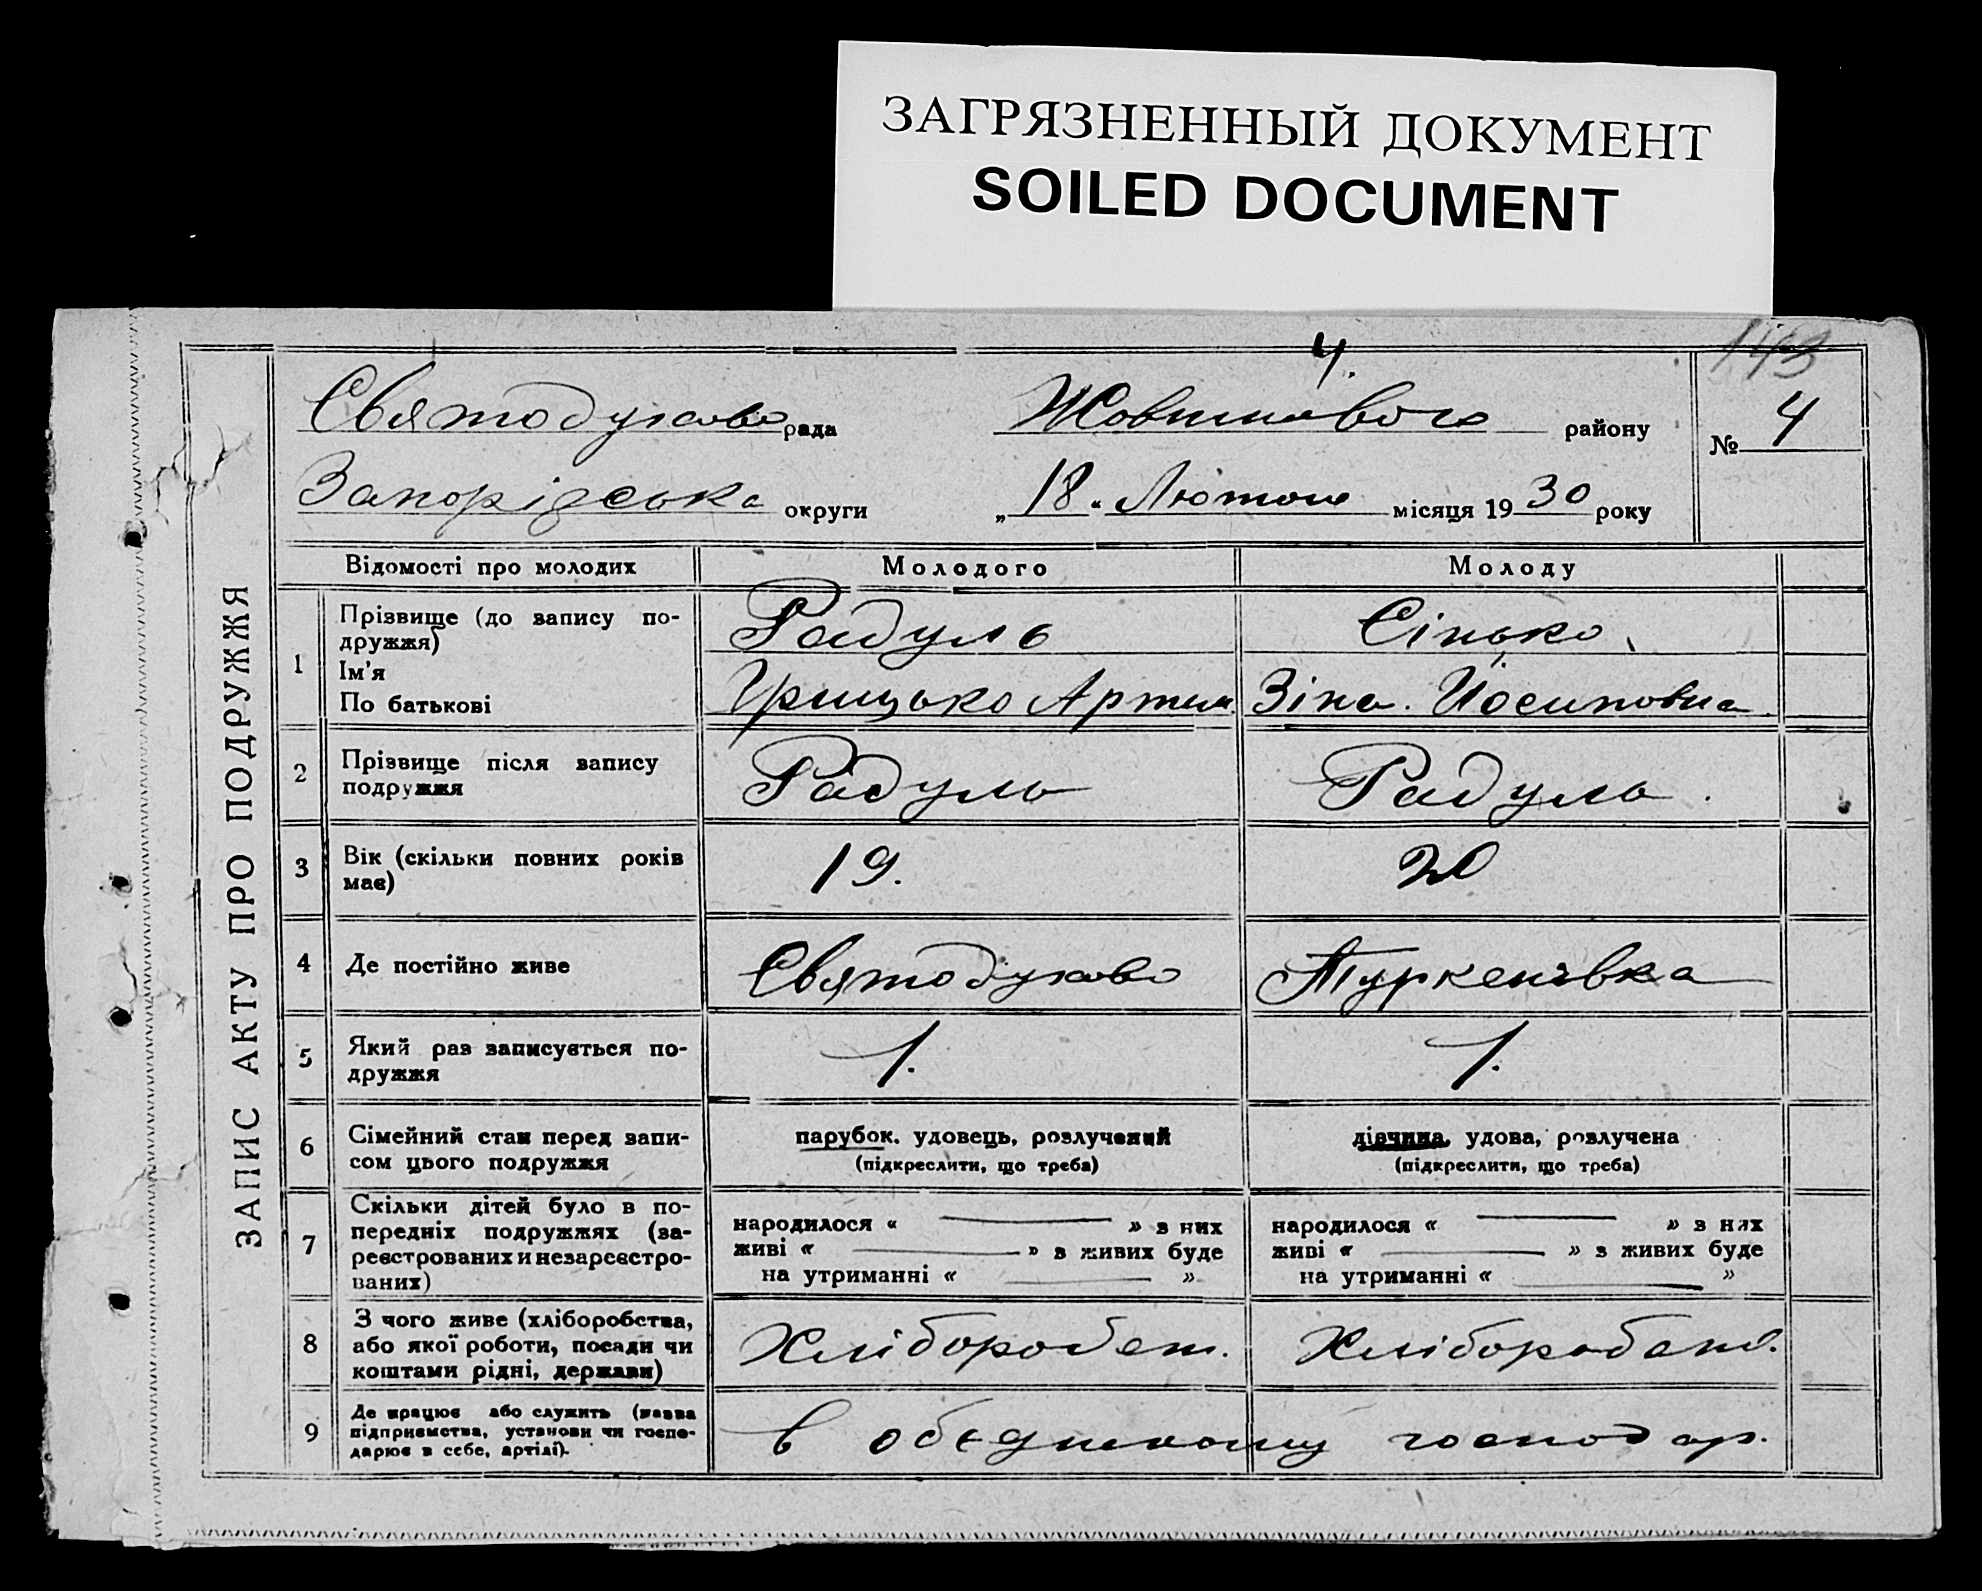 ЗАГРЯЗНЕННЫЙ ДОКУМЕНТ
SOILED DOCUMENT
4.
143
Святодухово рада Жовтнового району № 4
Запорізська округи „ 18 “ Лютого місяця 19 30 року
ЗАПИС АКТУ ПРО ПОДРУЖЖЯ
Відомості про молодих Молодого Молоду
1 Прізвище (до запису по-
дружжя) Радуль Сінько
Ім'я
По батькові Грицько Артем. Зіна. Йосиповна
2 Прізвище після запису
подружжя Радуль Радуль.
3 Вік (скільки повних років
має) 19. 20
4 Де постійно живе Святодухово Туркенівка
5 Який раз записується по-
дружжя 1. 1.
6 Сімейний стан перед запи-
сом цього подружжя
парубок, удовець, розлучений
(підкреслити, що треба)
дівчина, удова, розлучена
(підкреслити, що треба)
7 Скільки дітей було в по-
передніх подружжях (за-
реєстрованих и незареєстро-
ваних)
народилося « — » з них
живі « — » з живих буде
на утриманні « — »
народилося « — » з них
живі « — » з живих буде
на утриманні « — »
8 З чого живе (хліборобства,
або якої роботи, посади чи
коштами рідні, держави) Хлібороб ст. Хлібороб ств.
9 Де працює або служить (назва
підприємства, установи чи госпо-
дарює в себе, артілі). в обєднаному господар.